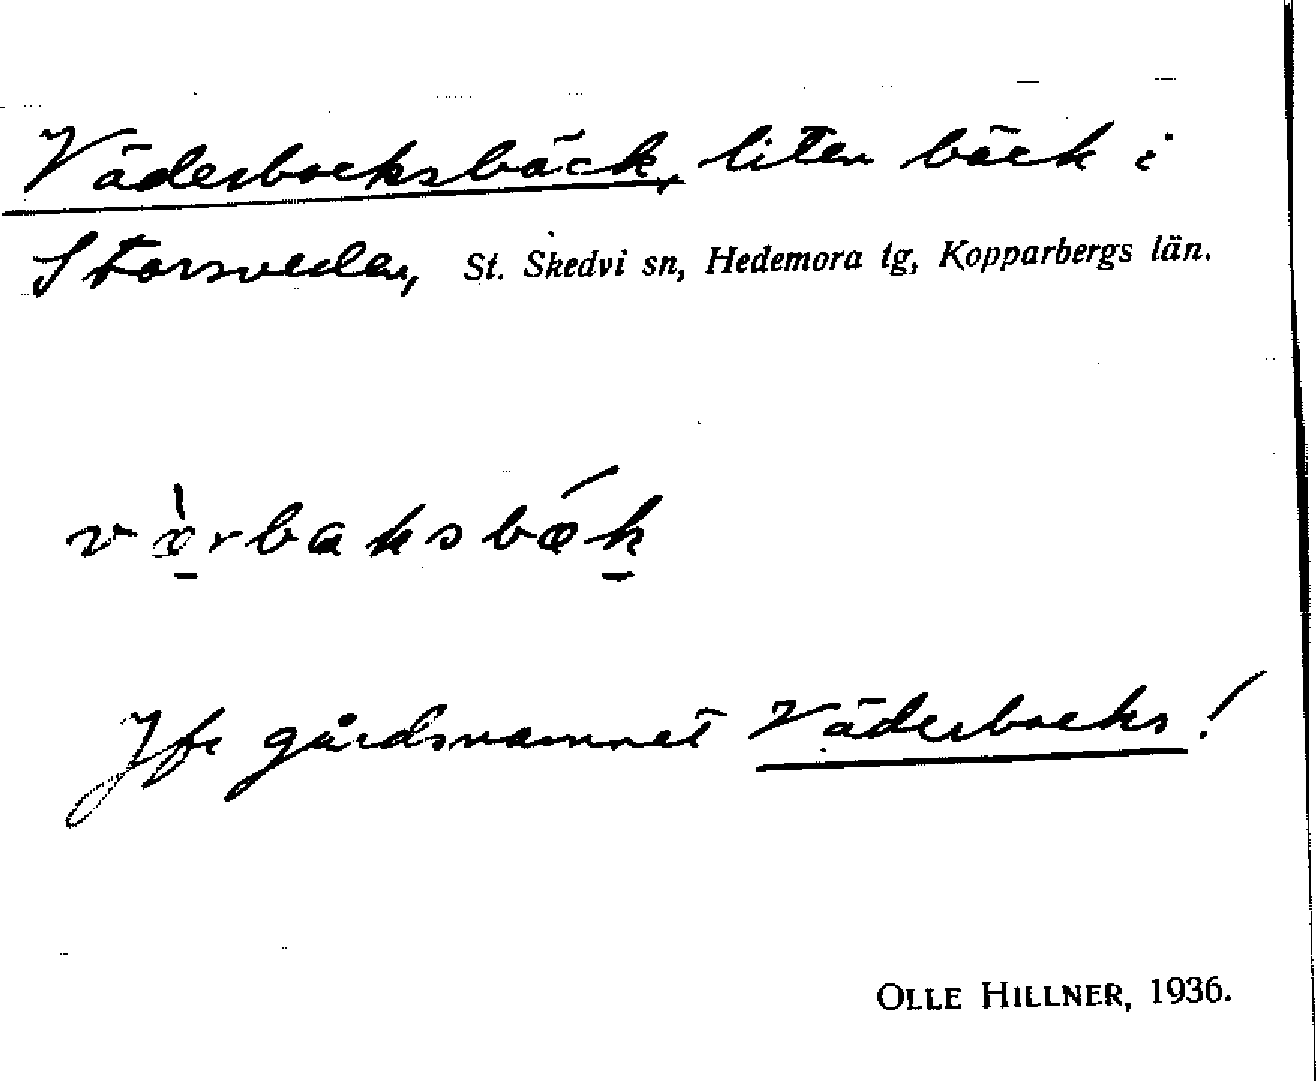 Väderbocksbäck, liten bäck i
Storsveden, St. Skedvi sn, Hedemora tg, Kopparbergs län.
væ̀rbaksbǽk
Jfr gårdsnamnet Väderbocks!
OLLE HILLNER, 1936.